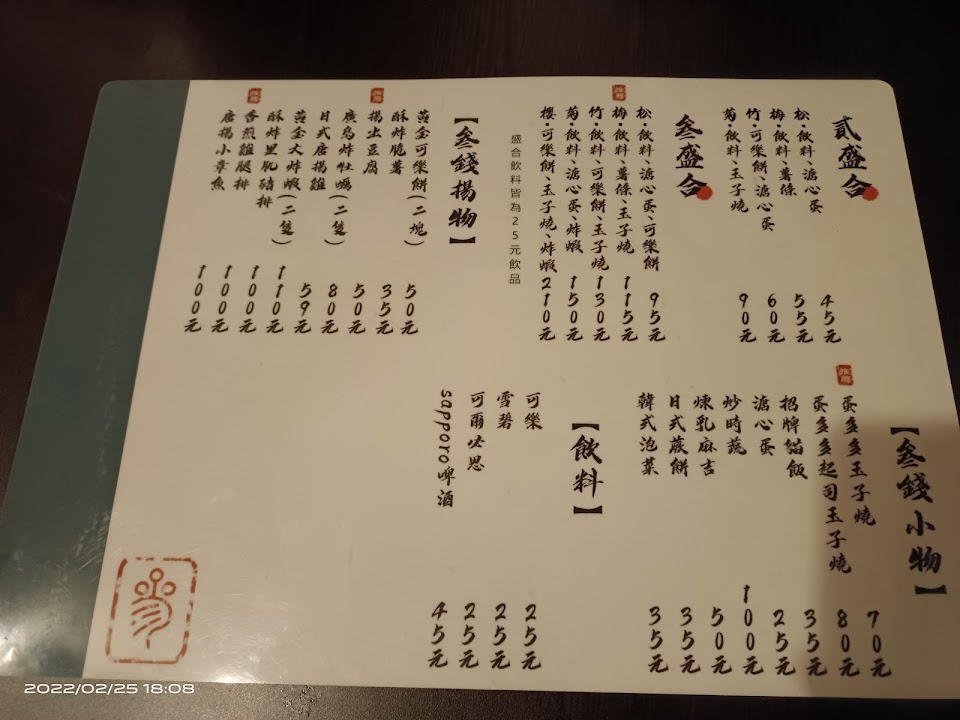 貳盛合
松・飲料、溏心蛋 45元
梅・飲料、薯條 55元
竹・可樂餅、溏心蛋 60元
菊・飲料、玉子燒 90元
叄盛合
松・飲料、溏心蛋、可樂餅 95元
推薦
梅・飲料、薯條、玉子燒 115元
竹・飲料、可樂餅、玉子燒 130元
菊・飲料、溏心蛋、炸蝦 150元
櫻・可樂餅、玉子燒、炸蝦 210元
盛合飲料皆為25元飲品
【叄錢揚物】
黃金可樂餅(二塊) 50元
酥炸脆薯 35元
推薦
揚出豆腐 50元
廣島炸牡蠣(二隻) 80元
日式唐揚雞 59元
黃金大炸蝦(二隻) 110元
酥炸里肌豬排 100元
推薦
香煎雞腿排 100元
唐揚小章魚 100元
【叄錢小物】
蛋多多玉子燒 70元
推薦
蛋多多起司玉子燒 80元
招牌貓飯 35元
溏心蛋 25元
炒時蔬 100元
煉乳麻吉 50元
日式蕨餅 35元
韓式泡菜 35元
【飲料】
可樂 25元
雪碧 25元
可爾必思 25元
sapporo啤酒 45元
2022/02/25 18:08